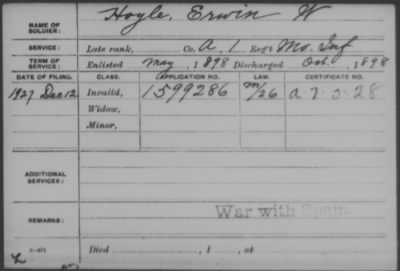 NAME OF SOLDIER: Hoyle, Erwin W
SERVICE: Late rank, Co. A, 1 Reg't Mo. Inf
TERM OF SERVICE: Enlisted May, 1898 Discharged Oct., 1898
DATE OF FILING. CLASS. APPLICATION NO. LAW. CERTIFICATE NO.
1927 Dec 12 Invalid, 1599286 M/26 a 7-5-28
Widow,
Minor,
ADDITIONAL SERVICES:
War with Spain
REMARKS:
Died , 1 , at